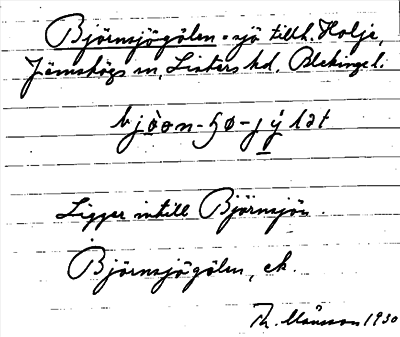 Björnsjögölen = sjö tillh. Holje,
Jämshögs sn, Listers hd, Blekinge l.
Ligger intill Björnsjön.
Björnsjögölen, ek.
Th. Månsson 1930